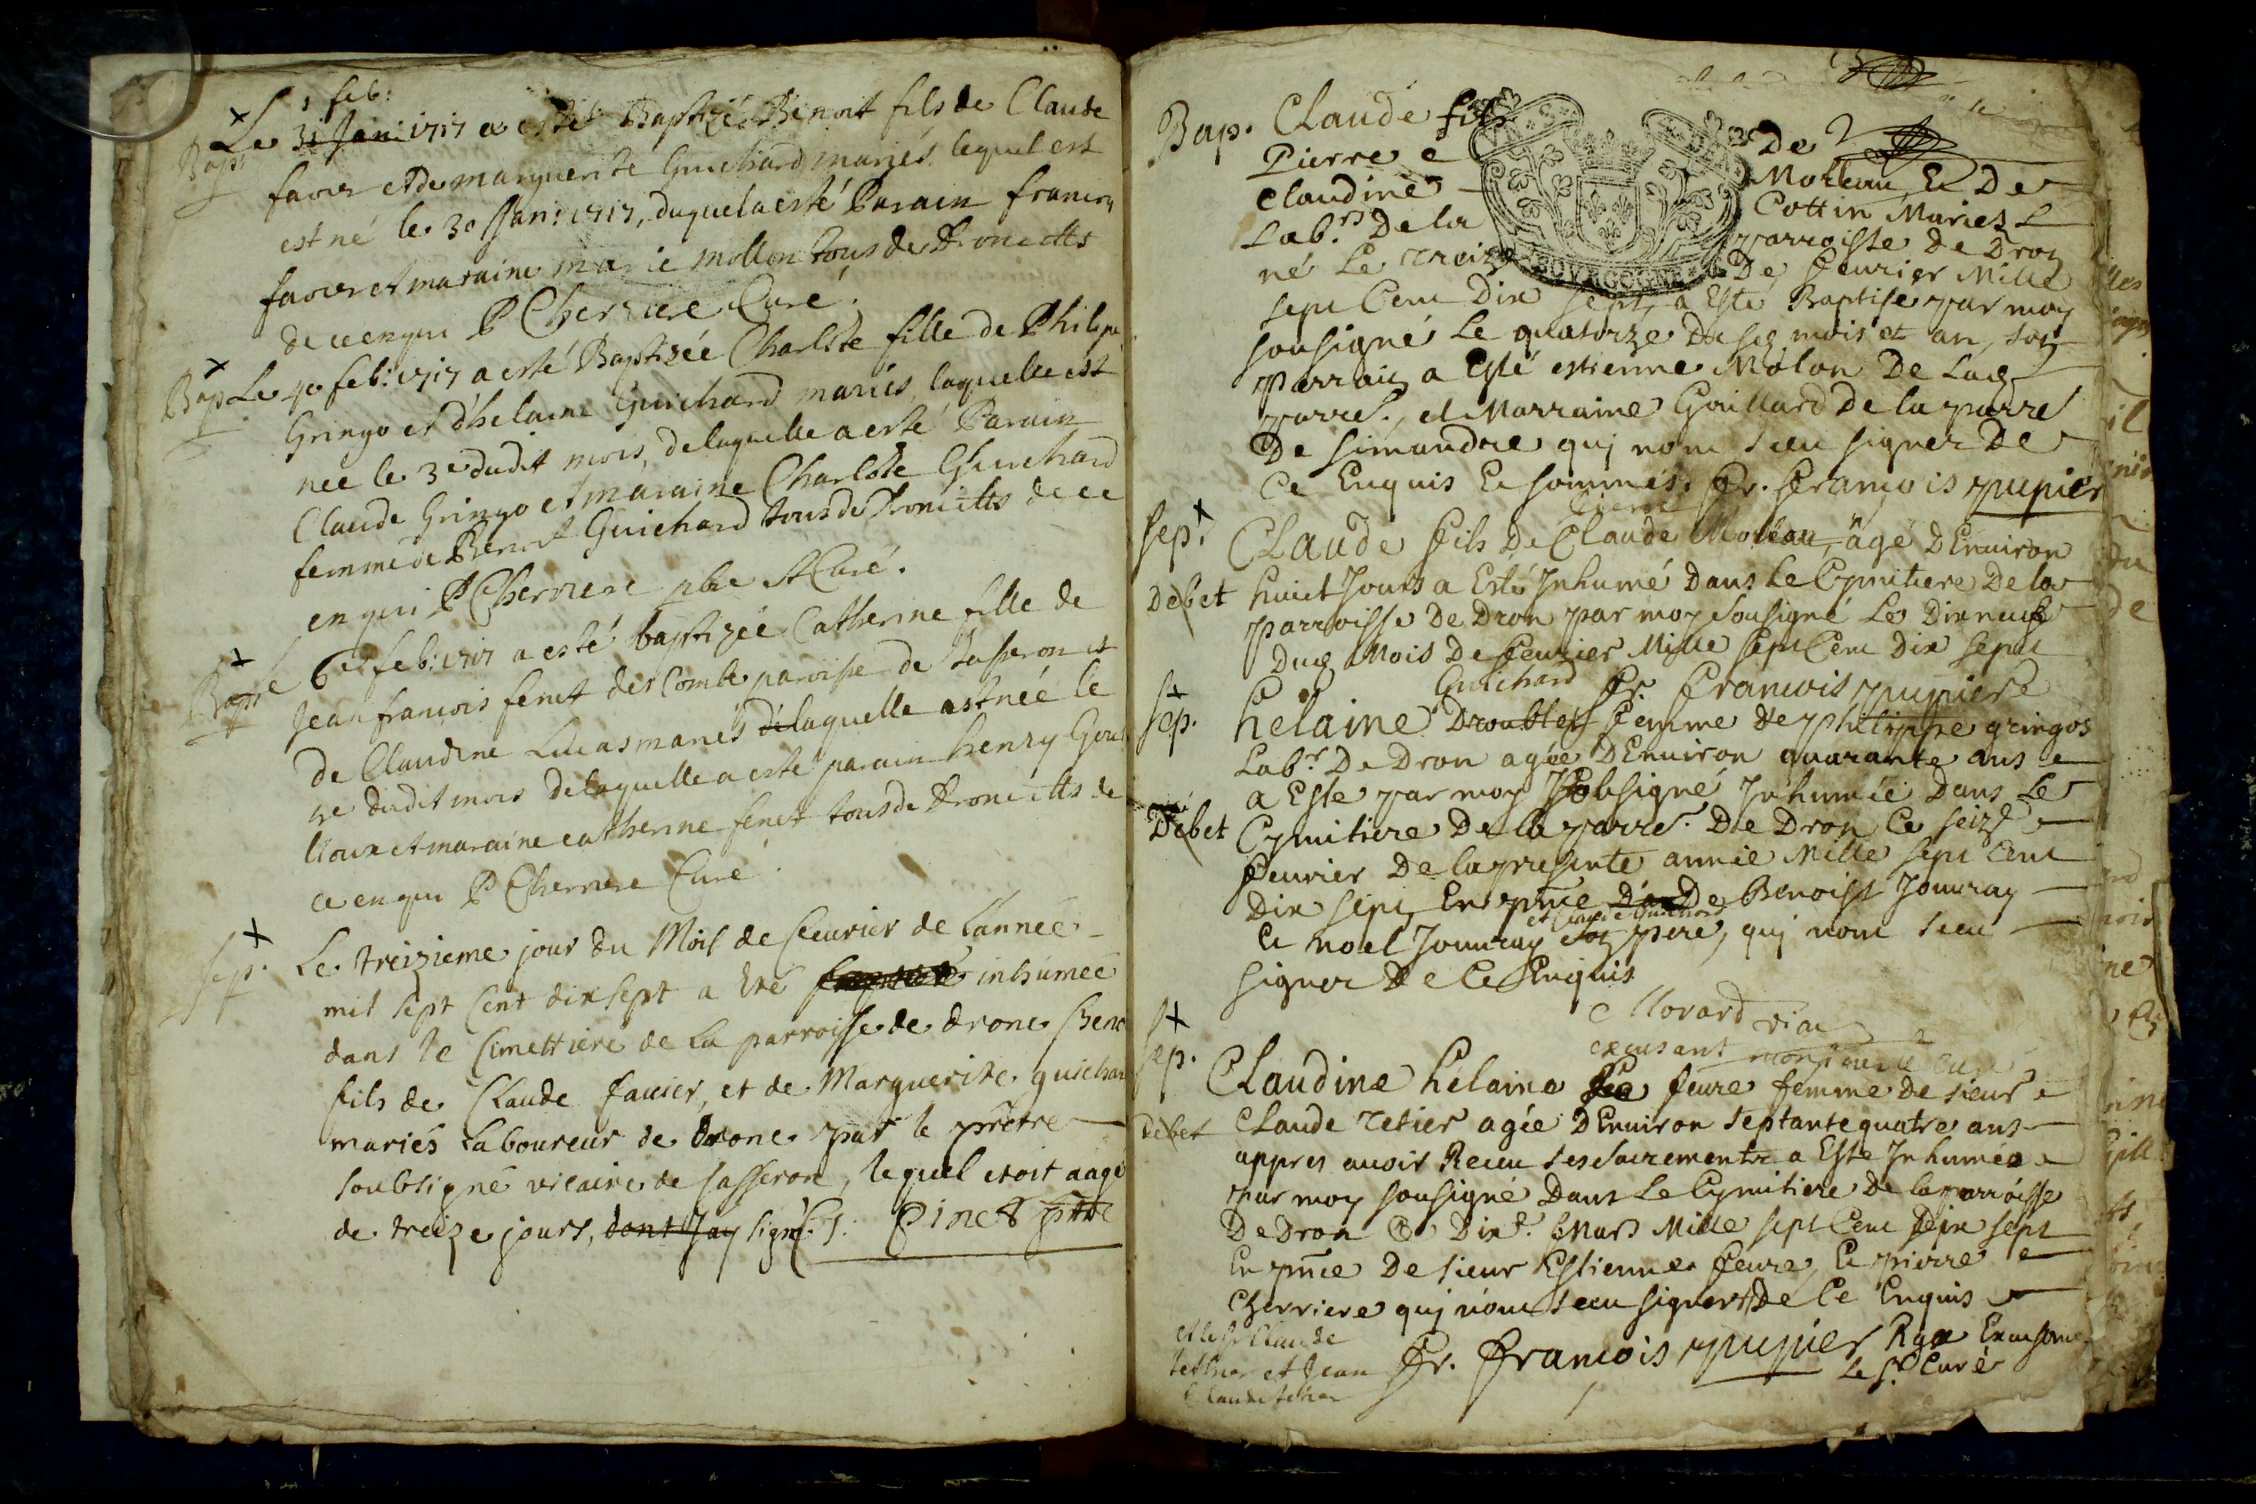 1 feb:
Bap: Le 31 Jan: 1717 a esté Baptizé Benoit fils de Claude
favier et de marguerite Guichard mariés lequel est
est né le 30 Jan: 1717, duquel a esté Parain francois
favier et maraine marie mollon tous de Drom etts
de ce enquis P Cherriere Curé.
Bap Le 4e feb: 1717 a esté Baptizée Charlote fille de Philipe
Gringo et d'helaine Guichard mariés, laquelle est
née le 3e dudit mois, delaquelle a esté Parain
Claude Gringo et maraine Charlote Guichard
femme de Benoit Guichard tous de Drom etts de ce
enquis P Cherriere pbre et Curé.
Bap Le 6e feb: 1717 a esté baptizée Catherine fille de
Jean francois feret des Combe paroisse de et
de Claudine Lucas mariés de laquelle est née le
dudit mois delaquelle a esté parain henry
et maraine catherine feret tous de Drom etts de
ce enquis P Cherriere Curé.
sep. Le treizieme jour du Mois de feburier de l'année
mil sept cent dix sept a eté inhumée
dans le cimettiere de la parroisse de drone
fils de Claude favier, et de Marguerite guichar
mariés laboureur de drone par le prêtre
soubsigné vicaire de Jasseron, lequel etoit aagé
de treize jours, dont Jay signé. Pinet ptre
Bap. Claude fils De
Pierre e Moleau Et De
claudine Cottin Mariez L
Lab.rs De la parroisse de Dron
né Le treize De feurier Mille
sept Cent Dix sept, a Esté Baptisé par moy
sousigné Le quatorze Du mois et an, son
parrain a Esté estienne Molon De
parre., et Marraine Gaillard de la parre
De simandre qui nont sceu signer De
Ce Enquis Et sommés. fr. francois pupier
Pierre
sep. Claude fils De Claude Moleau, agé DEnuiron
Debet huict Jours a Esté Inhumé Dans Le Cymitiere De la
parroisse De Dron par moy Sousigné Le Dixneuf
Mois De feurier Mille sept Cent Dix sept
Guichard fr. francois pupier
sep. helaine Droublet femme de philippe gringos
Lab.r De Dron agée DEnuiron quarante ans
a Este par moy Sousigné Inhumée Dans Le
Debet Cymitiere De la parre. De Dron Ce seize
feurier De la presente année Mille sept Cent
Dix sept En pnce De Benoist Jouuray
et Claude Guichard
Et noel Jouuray son pere, qui nont sceu
signer De Ce Enquis
Morard vic
excusant monsieur le curé
sep. Claudine helaine feure femme de sieur
Debet Claude retier agée DEnuiron septante quatre ans
appres auoir Receu ses sacrements a Esté Inhumée
par moy sousigné Dans Le Cymitiere De la parroisse
De Dron Ce Dix.e Mars Mille sept Cent Dix sept
En pnce De sieur Estienne feure Et pierre
Cherriere qui nont sceu signer De Ce Enquis
et le sr Claude
retier et Jean
Claude retier
fr. francois pupier Rgx Excusant
Le sr Curé